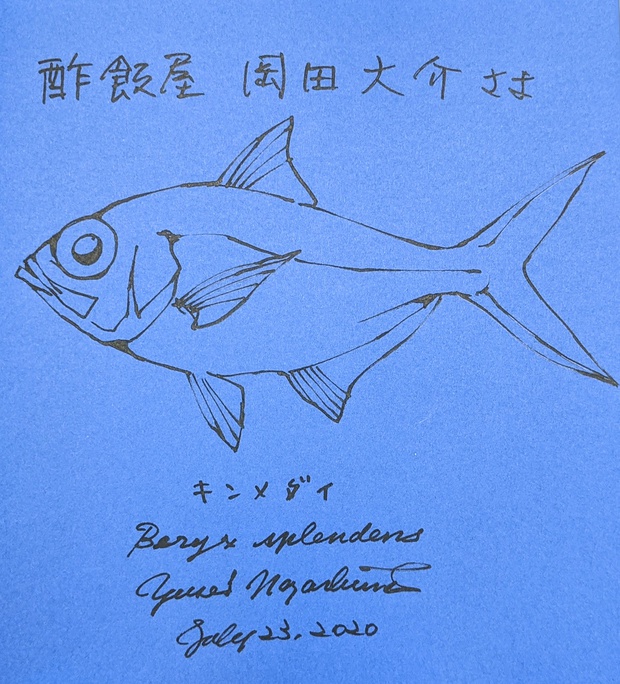 酢飯屋 岡田大介さま
キンメダイ
Beryx splendens
Yusei Nagashima
July 23, 2020